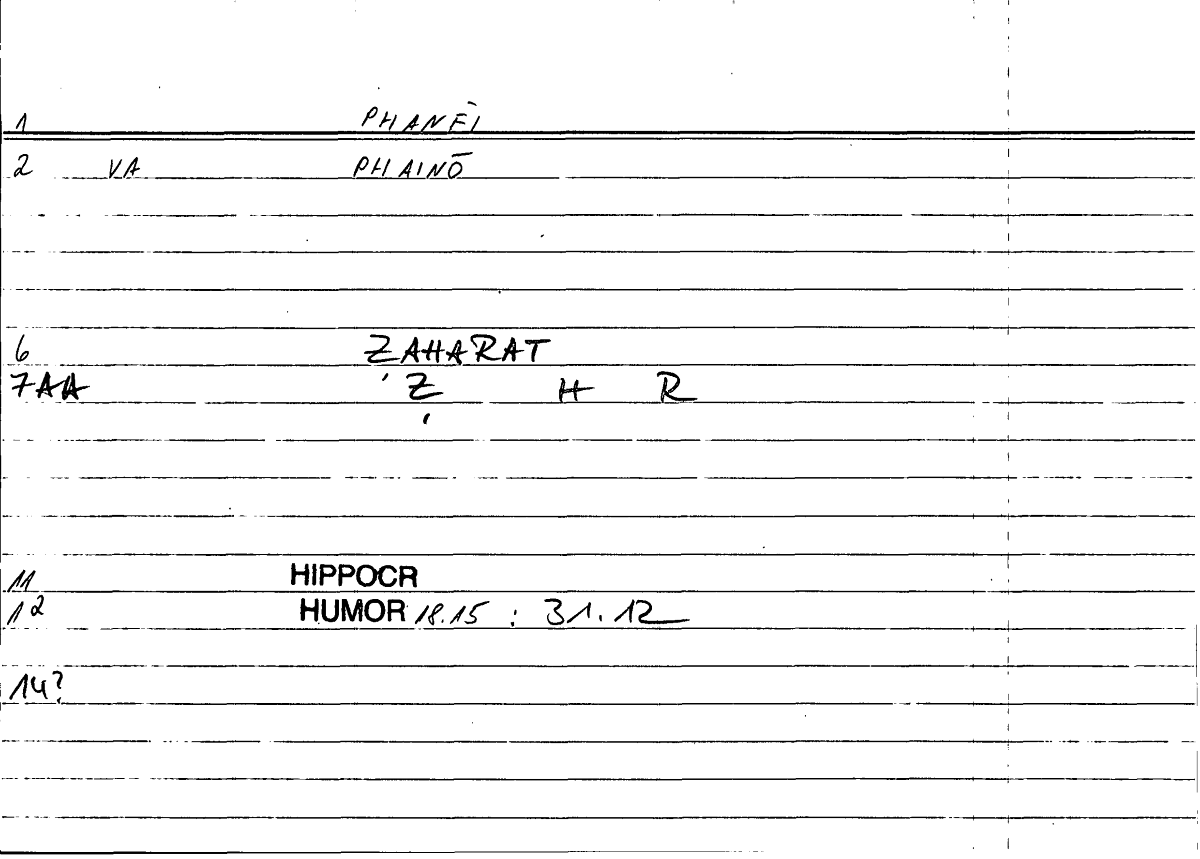 1 PHANĒI
2 VA PHAINŌ
6 ẒAHARAT
7AA Ẓ H R
11 HIPPOCR
12 HUMOR 18.15 : 31.12
14?